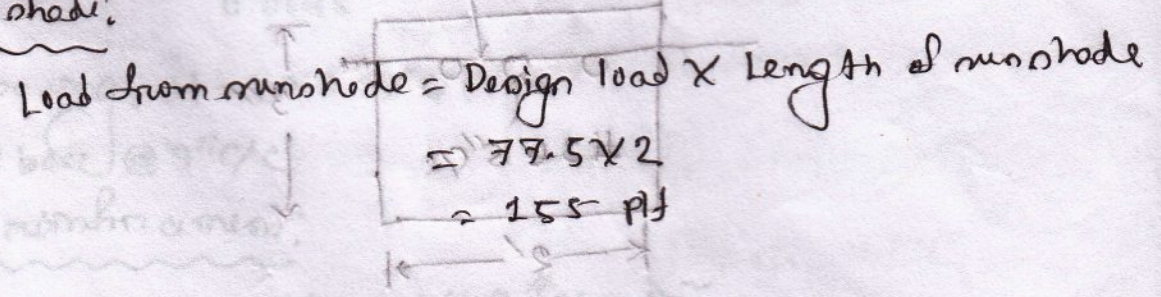 shade.
Load from sunshade = Design load X Length of sunshade
= 77.5 X 2
= 155 plf